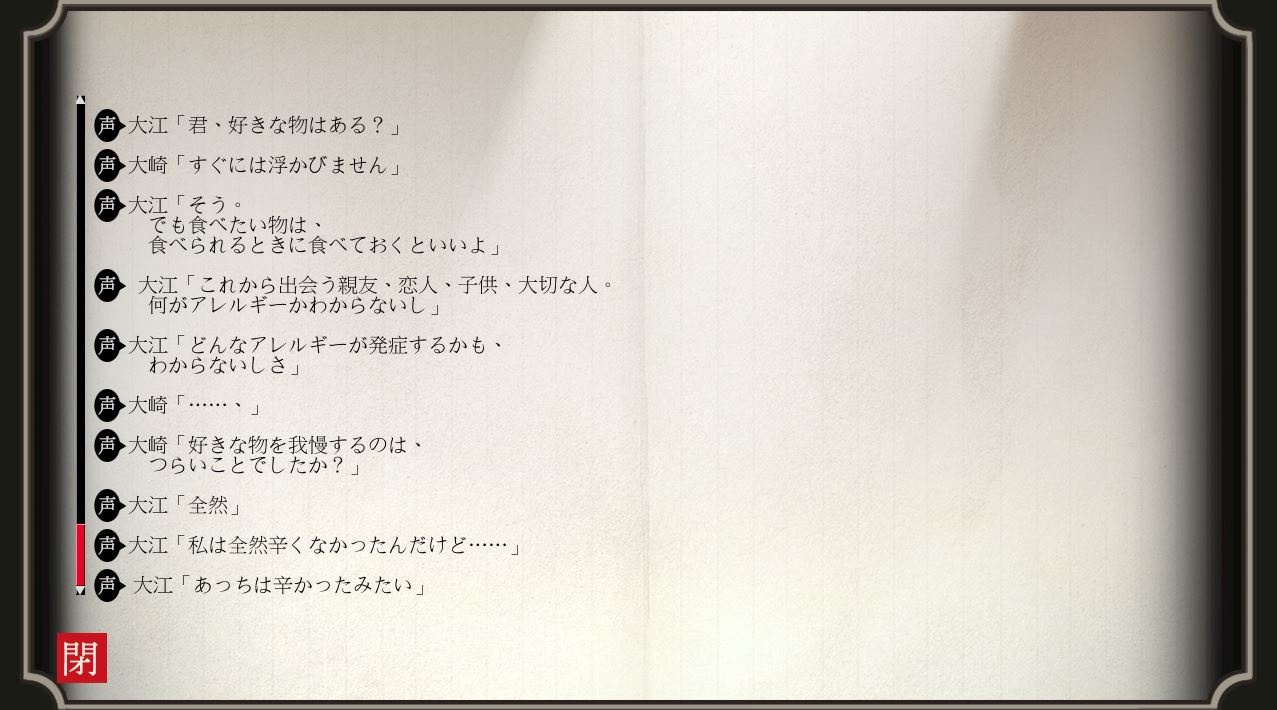 声 大江「君、好きな物はある？」
声 大崎「すぐには浮かびません」
声 大江「そう。
でも食べたい物は、
食べられるときに食べておくといいよ」
声 大江「これから出会う親友、恋人、子供、大切な人。
何がアレルギーかわからないし」
声 大江「どんなアレルギーが発症するかも、
わからないしさ」
声 大崎「……、」
声 大崎「好きな物を我慢するのは、
つらいことでしたか？」
声 大江「全然」
声 大江「私は全然辛くなかったんだけど……」
声 大江「あっちは辛かったみたい」
閉